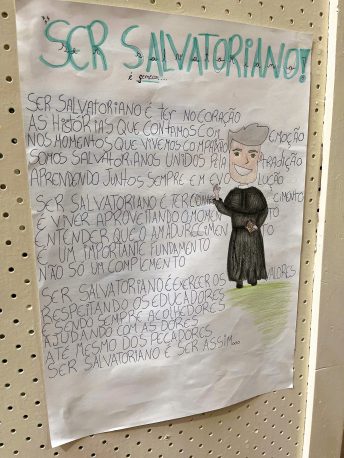 SER SALVATORIANO!
É gemeam...
SER SALVATORIANO É TER NO CORAÇÃO
AS HISTÓRIAS QUE CONTAMOS COM EMOÇÃO
NOS MOMENTOS QUE VIVEMOS COMPAIXÃO
SOMOS SALVATORIANOS UNIDOS PELA TRADIÇÃO
APRENDENDO JUNTOS SEMPRE EM EVOLUÇÃO
SER SALVATORIANO É TER CONHECIMENTO
É VIVER APROVEITANDO O MOMENTO
ENTENDER QUE O AMADURECIMENTO
É UM IMPORTANTE FUNDAMENTO
NÃO SÓ UM COMPLEMENTO
SER SALVATORIANO É EXERCER OS VALORES
RESPEITANDO OS EDUCADORES
E SENDO SEMPRE ACOLHEDORES
AJUDANDO COM AS DORES
ATÉ MESMO DOS PECADORES
SER SALVATORIANO É SER ASSIM...